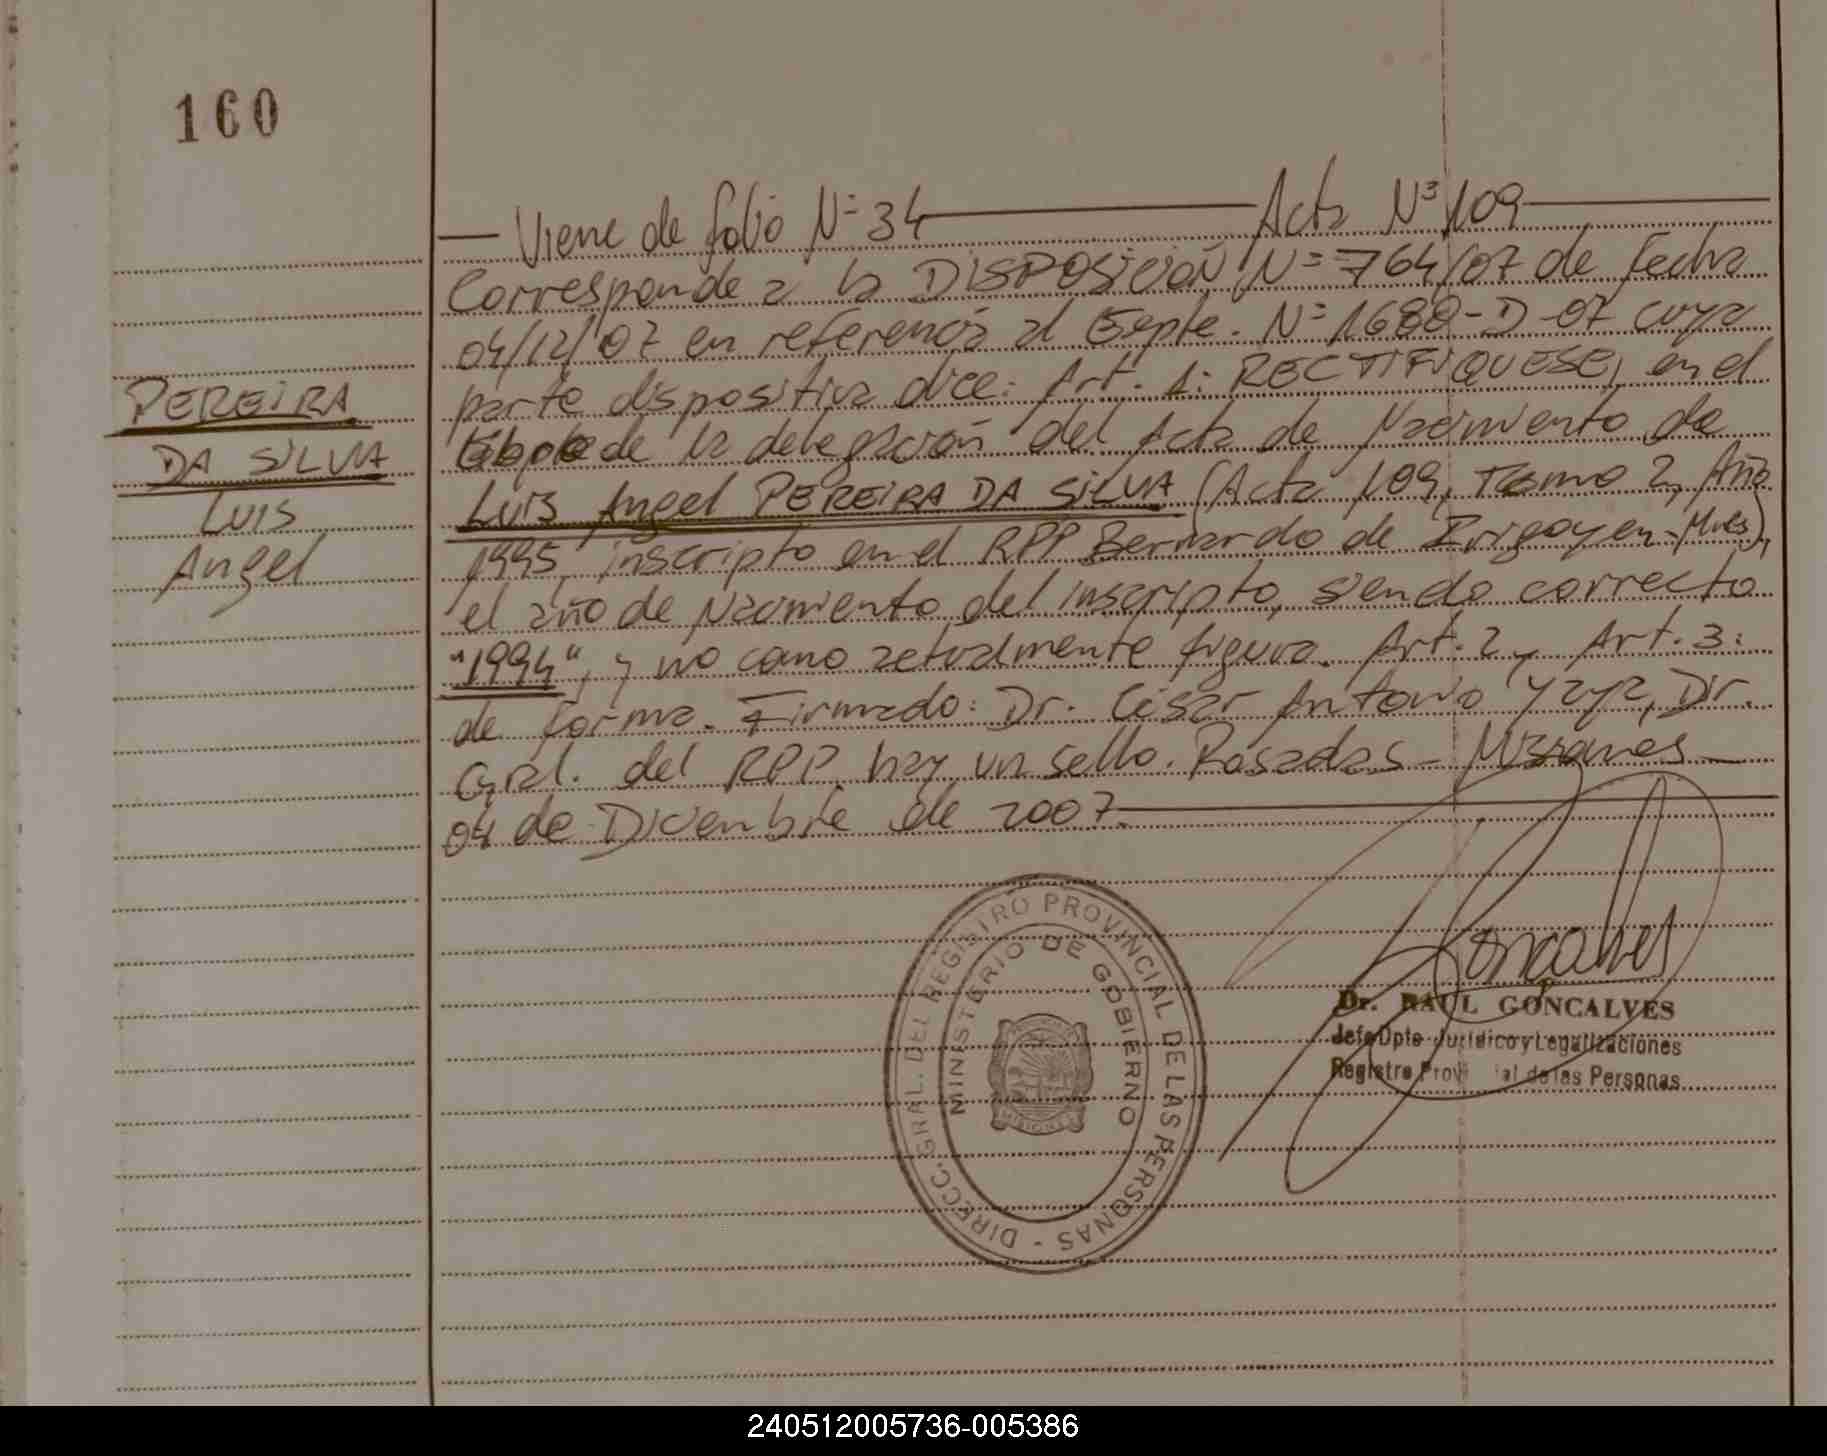 160
Viene de folio N= 34 Acta Nº 109
Corresponde a la DISPOSICIÓN N= 764/07 de fecha
04/12/07 en referencia al Expte. N= 1688-D-07 cuya
parte dispositiva dice: Art. 1: RECTIFIQUESE, en el
de la delegación del Acta de Nacimiento de
Luis Angel PEREIRA DA SILVA (Acta 109, Tomo 2, Año
1995, inscripto en el RPP Bernardo de Irigoyen-Mnes),
el año de Nacimiento del inscripto, siendo correcto
"1994", y no como actualmente figura. Art. 2 y Art. 3:
de forma. Firmado: Dr. César Antonio Yaya, Dir.
Gral. del RPP hay un sello. Posadas - Misiones
04 de Diciembre de 2007.
PEREIRA
DA SILVA
Luis
Angel
DIRECC. GRAL. DEL REGISTRO PROVINCIAL DE LAS PERSONAS -
MINISTERIO DE GOBIERNO
MISIONES
Gonçalves
Dr. RAUL GONÇALVES
Jefe Dpto Jurídico y Legalizaciones
Registro Provi ial de las Personas
240512005736-005386